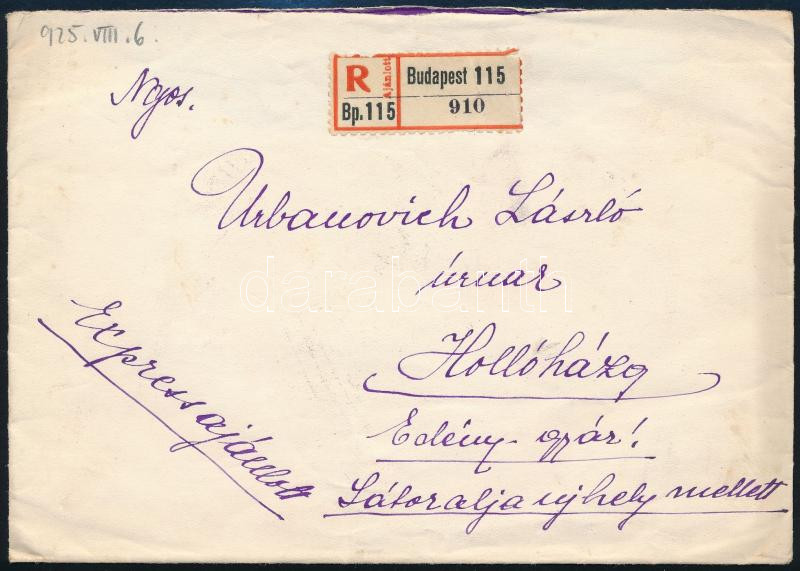 925.VIII.6.
R Ajánlott Budapest 115
Bp.115 910
Ngos.
Urbanovich László
úrnak
Hollóháza
Edény-gyár!
Sátoraljaujhely mellett
Express ajánlott
darabanth